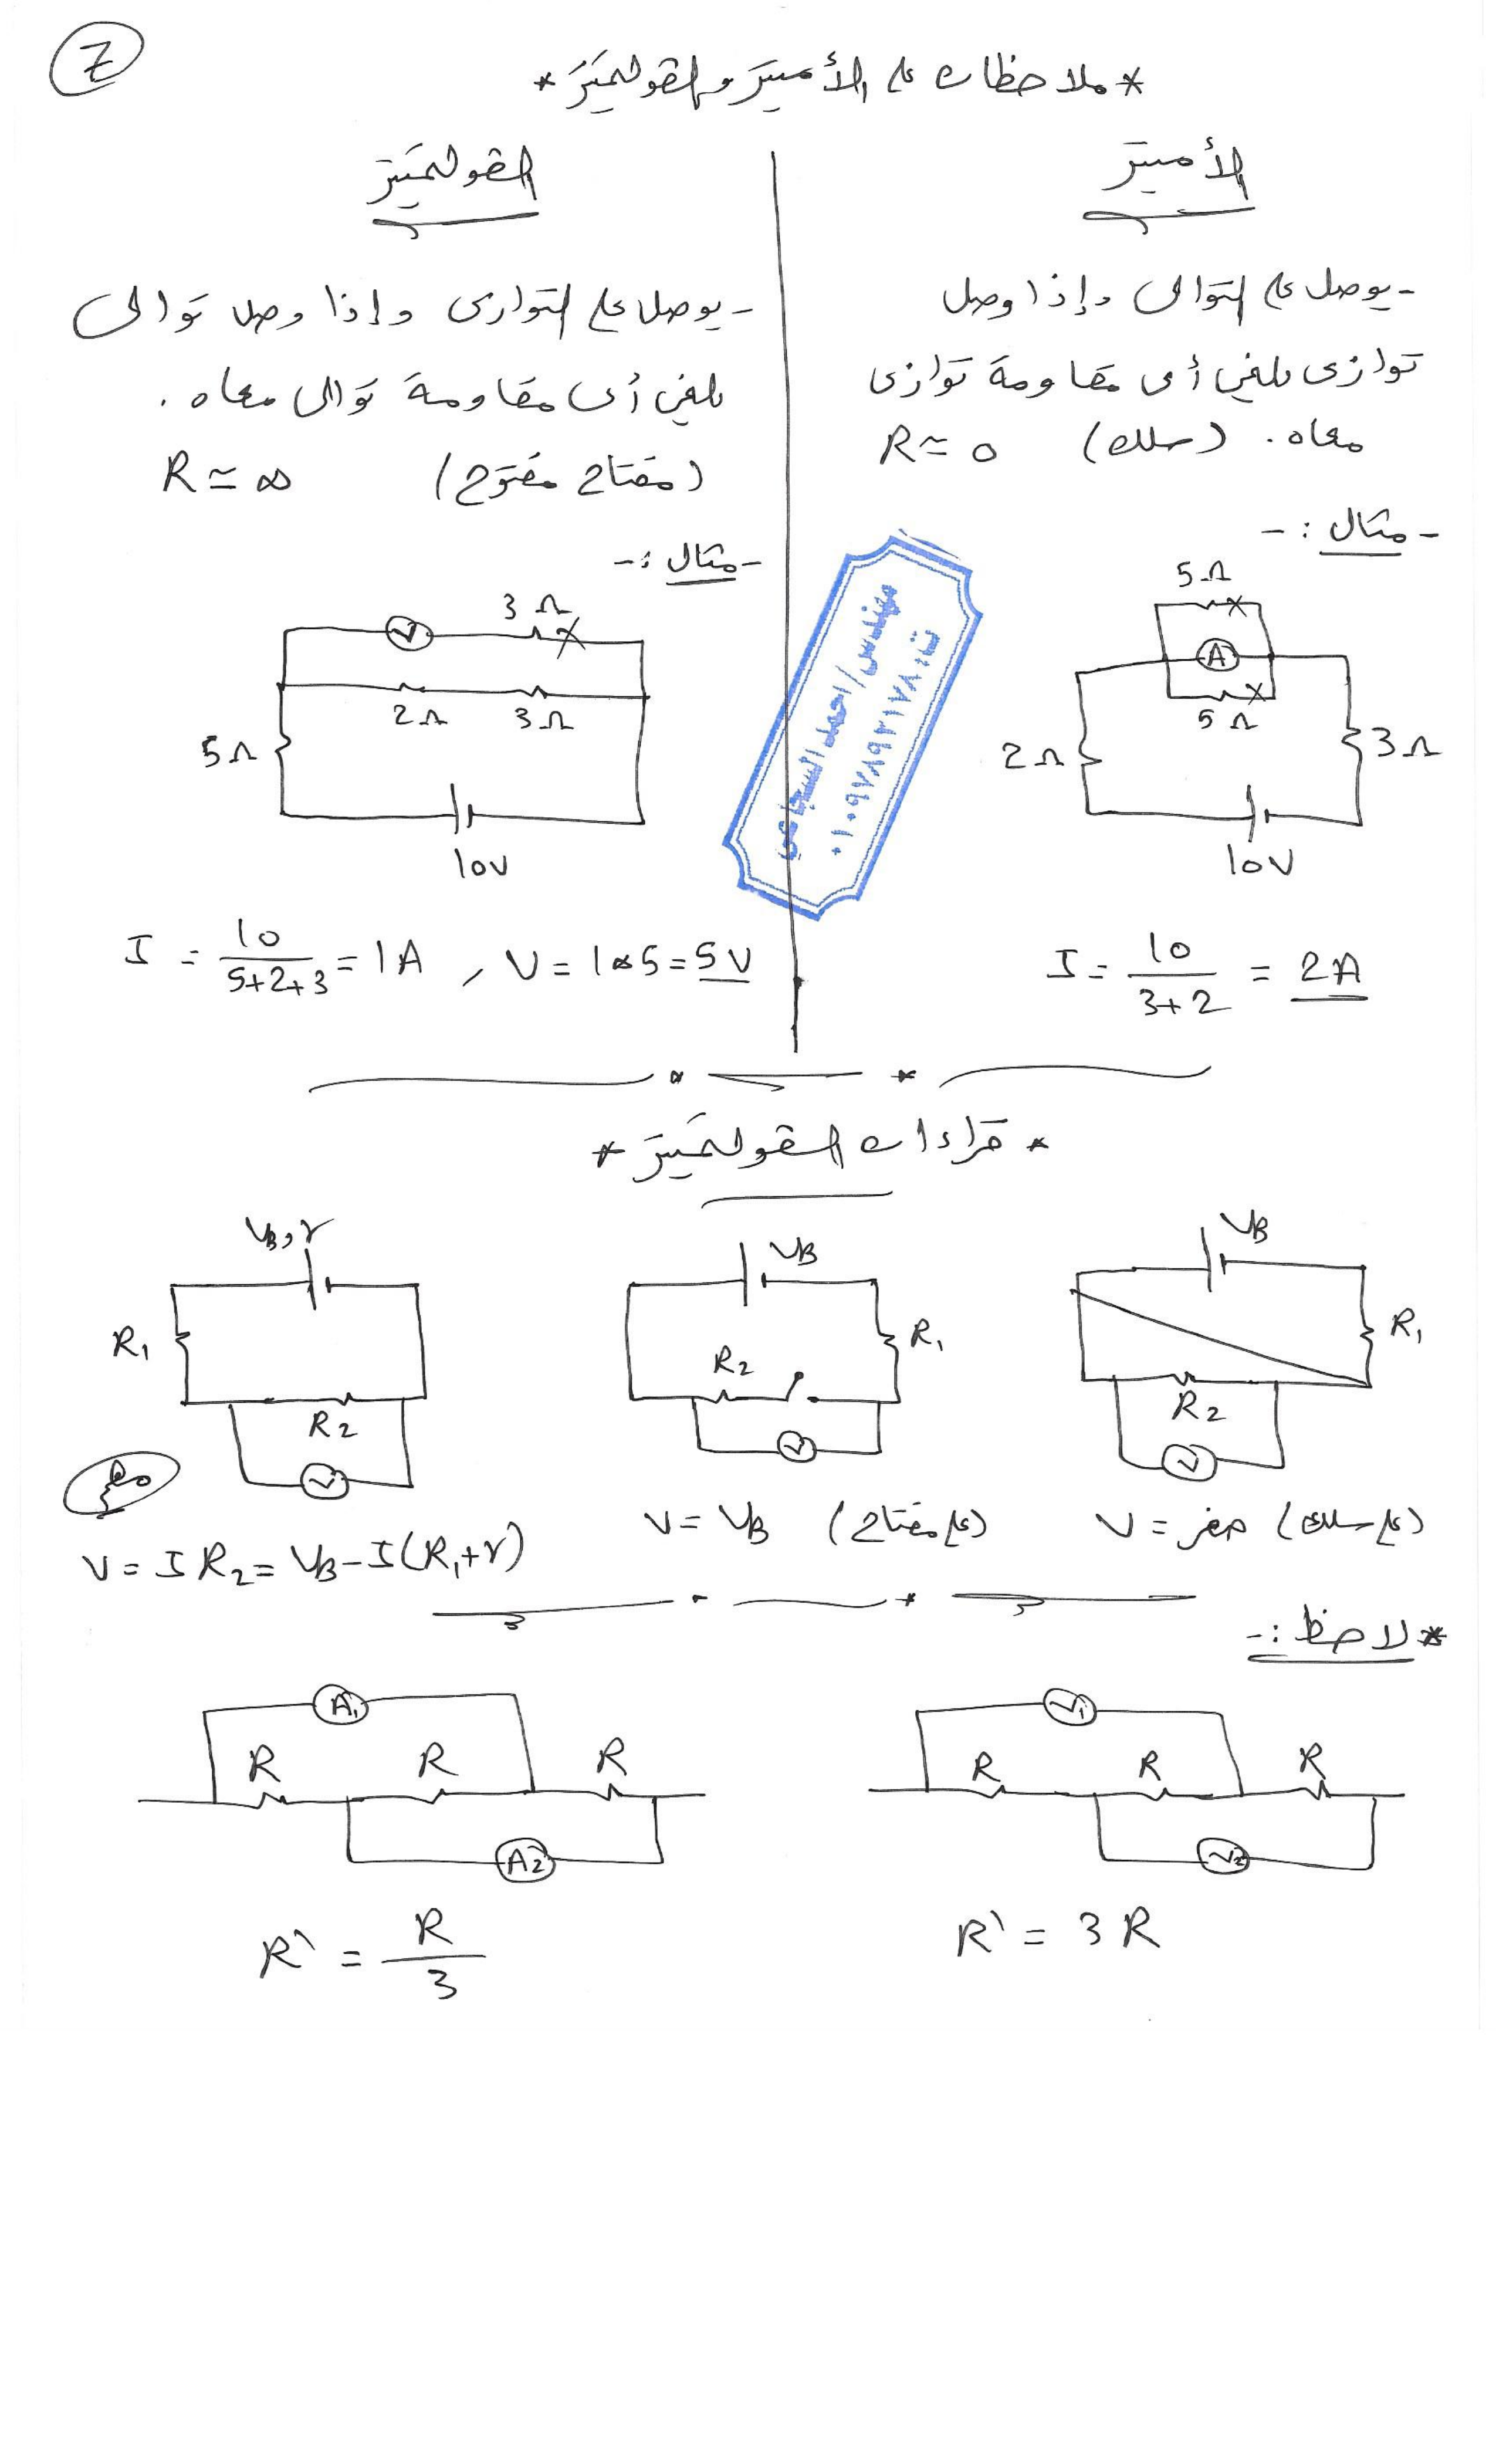 7
* ملاحظات على الأميتر والڤولتميتر *
الأميتر
- يوصل على التوالى وإذا وصل
توازى يلغى أى مقاومة توازى
معاه. (سلك) R ≃ 0
- مثال :-
5Ω
A
5Ω
2Ω
3Ω
10V
I = 10/(3+2) = 2A
الڤولتميتر
- يوصل على التوازى وإذا وصل توالى
يلغى أى مقاومة توالى معاه.
(مفتاح مفتوح) R ≃ ∞
- مثال :-
V 3Ω
2Ω 3Ω
5Ω
10V
I = 10/(5+2+3) = 1A , V = 1×5 = 5V
مهندس/احمد السجاعي
* قراءات الڤولتميتر *
VB
R1
R2
V
V = صفر (على سلك)
VB
R1
R2
V
V = VB (على مفتاح)
VB, r
R1
R2
V
V = I R2 = VB - I(R1+r)
* لاحظ :-
V1
R R R
V2
R` = 3R
A1
R R R
A2
R` = R/3